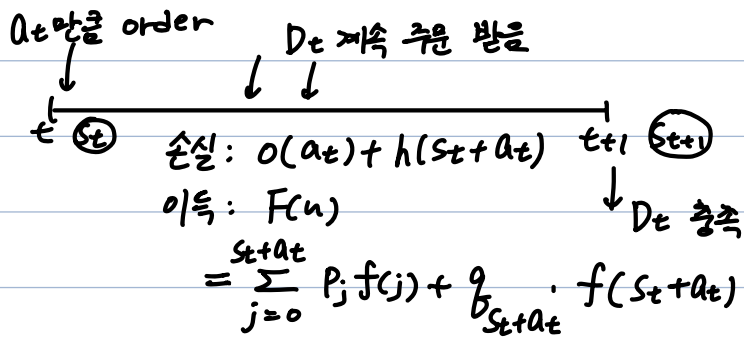 at만큼 order
Dt 계속 주문 받음
t St t+1 St+1
손실: O(at) + h(St+at)
이득: F(u)
Dt 충족
= Σ_{j=0}^{St+at} Pj f(j) + q_{St+at} · f(St+at)